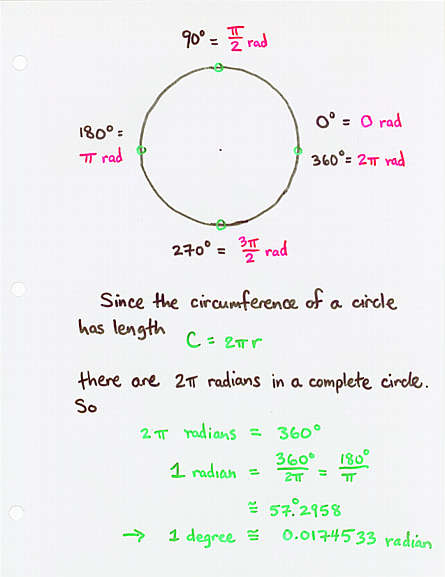 90° = π/2 rad
180° =
π rad
0° = 0 rad
360° = 2π rad
270° = 3π/2 rad
Since the circumference of a circle
has length
C = 2πr
there are 2π radians in a complete circle.
So
2π radians = 360°
1 radian = 360°/2π = 180°/π
≅ 57.°2958
→ 1 degree ≅ 0.0174533 radian